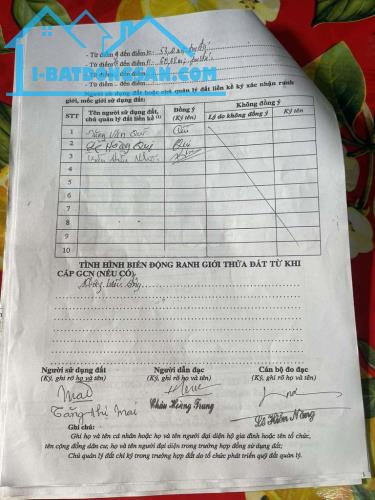 I-BATDONGSAN.COM
- Từ điểm 9 đến điểm 10:
- Từ điểm đến điểm
- Từ điểm đến điểm
Người sử dụng đất hoặc chủ quản lý đất liền kề ký xác nhận ranh
giới, mốc giới sử dụng đất:
STT Tên người sử dụng đất, chủ quản lý đất liền kề (1) Đồng ý (Ký tên) Không đồng ý
Lý do không đồng ý Ký tên
1 Văn
2 Hồng
3
4
5
6
7
8
9
10
TÌNH HÌNH BIẾN ĐỘNG RANH GIỚI THỬA ĐẤT TỪ KHI
CẤP GCN (NẾU CÓ).
Người sử dụng đất Người dẫn đạc Cán bộ đo đạc
(Ký, ghi rõ họ và tên) (Ký, ghi rõ họ và tên) (Ký, ghi rõ họ và tên)
Mai
Tăng Thị Mai Châu Hoàng Trung Lê Hiền Năng
Ghi chú:
Ghi họ và tên cá nhân hoặc họ và tên người đại diện hộ gia đình hoặc tên tổ chức,
tên cộng đồng dân cư, họ và tên người đại diện trong trường hợp đồng sử dụng đất;
Chủ quản lý đất chỉ ký trong trường hợp đất do tổ chức phát triển quỹ đất quản lý.